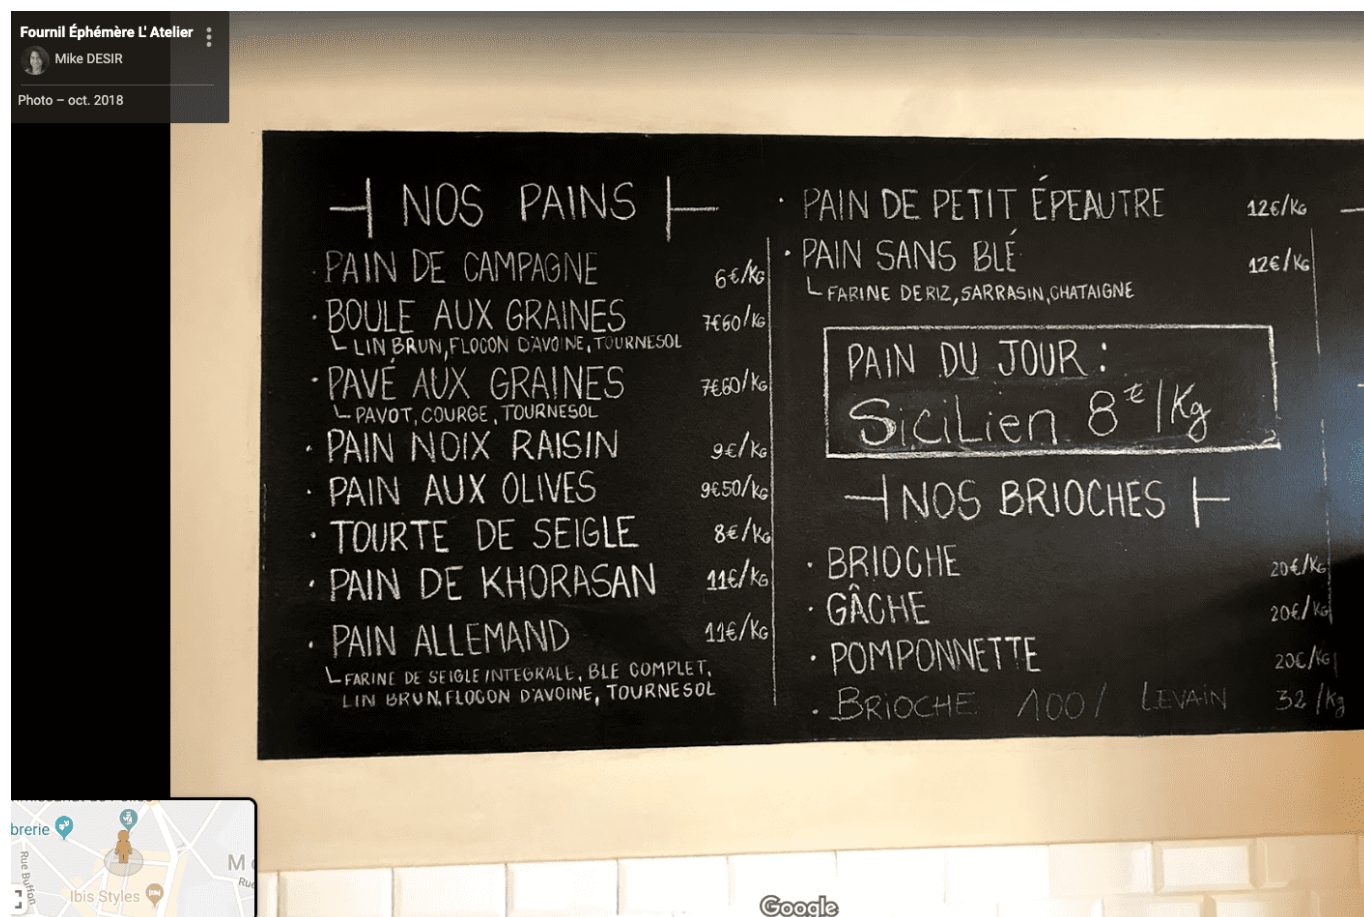 Fournil Éphémère L' Atelier
Mike DESIR
Photo – oct. 2018
NOS PAINS
· PAIN DE CAMPAGNE 6€/KG
· BOULE AUX GRAINES 7€60/KG
LIN BRUN, FLOCON D'AVOINE, TOURNESOL
· PAVÉ AUX GRAINES 7€60/KG
PAVOT, COURGE, TOURNESOL
· PAIN NOIX RAISIN 9€/KG
· PAIN AUX OLIVES 9€50/KG
· TOURTE DE SEIGLE 8€/KG
· PAIN DE KHORASAN 11€/KG
· PAIN ALLEMAND 11€/KG
FARINE DE SEIGLE INTEGRALE, BLE COMPLET,
LIN BRUN, FLOCON D'AVOINE, TOURNESOL
· PAIN DE PETIT ÉPEAUTRE 12€/KG
· PAIN SANS BLÉ 12€/KG
FARINE DE RIZ, SARRASIN, CHATAIGNE
PAIN DU JOUR :
SiciLien 8€/Kg
NOS BRIOCHES
· BRIOCHE 20€/KG
· GÂCHE 20€/KG
· POMPONNETTE 20€/KG
· BRIOCHE 100/ LEVAIN 32/Kg
brerie
Rue Buffon
Ibis Styles
Rue
Google